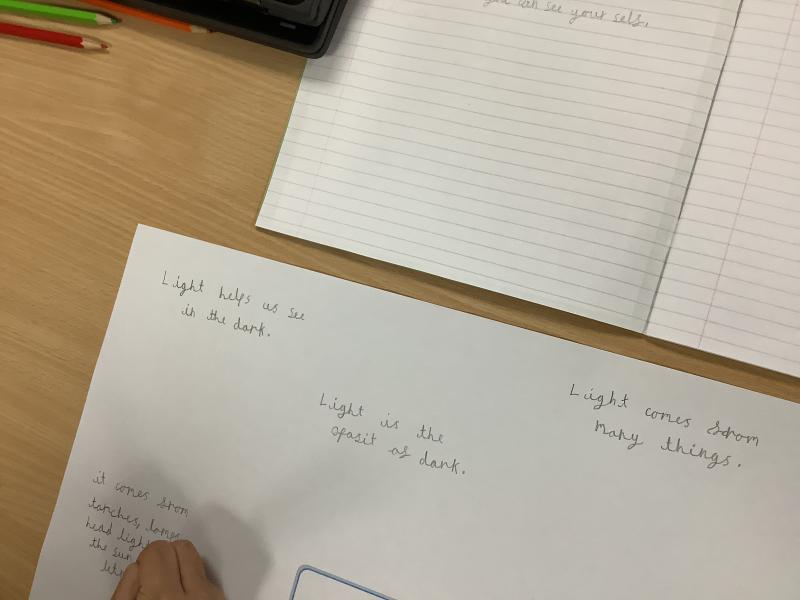 you can see your self.
Light helps us see
in the dark.
Light is the
opasit of dark.
Light comes from
many things.
it comes from
torches, lamps
head light
the sun